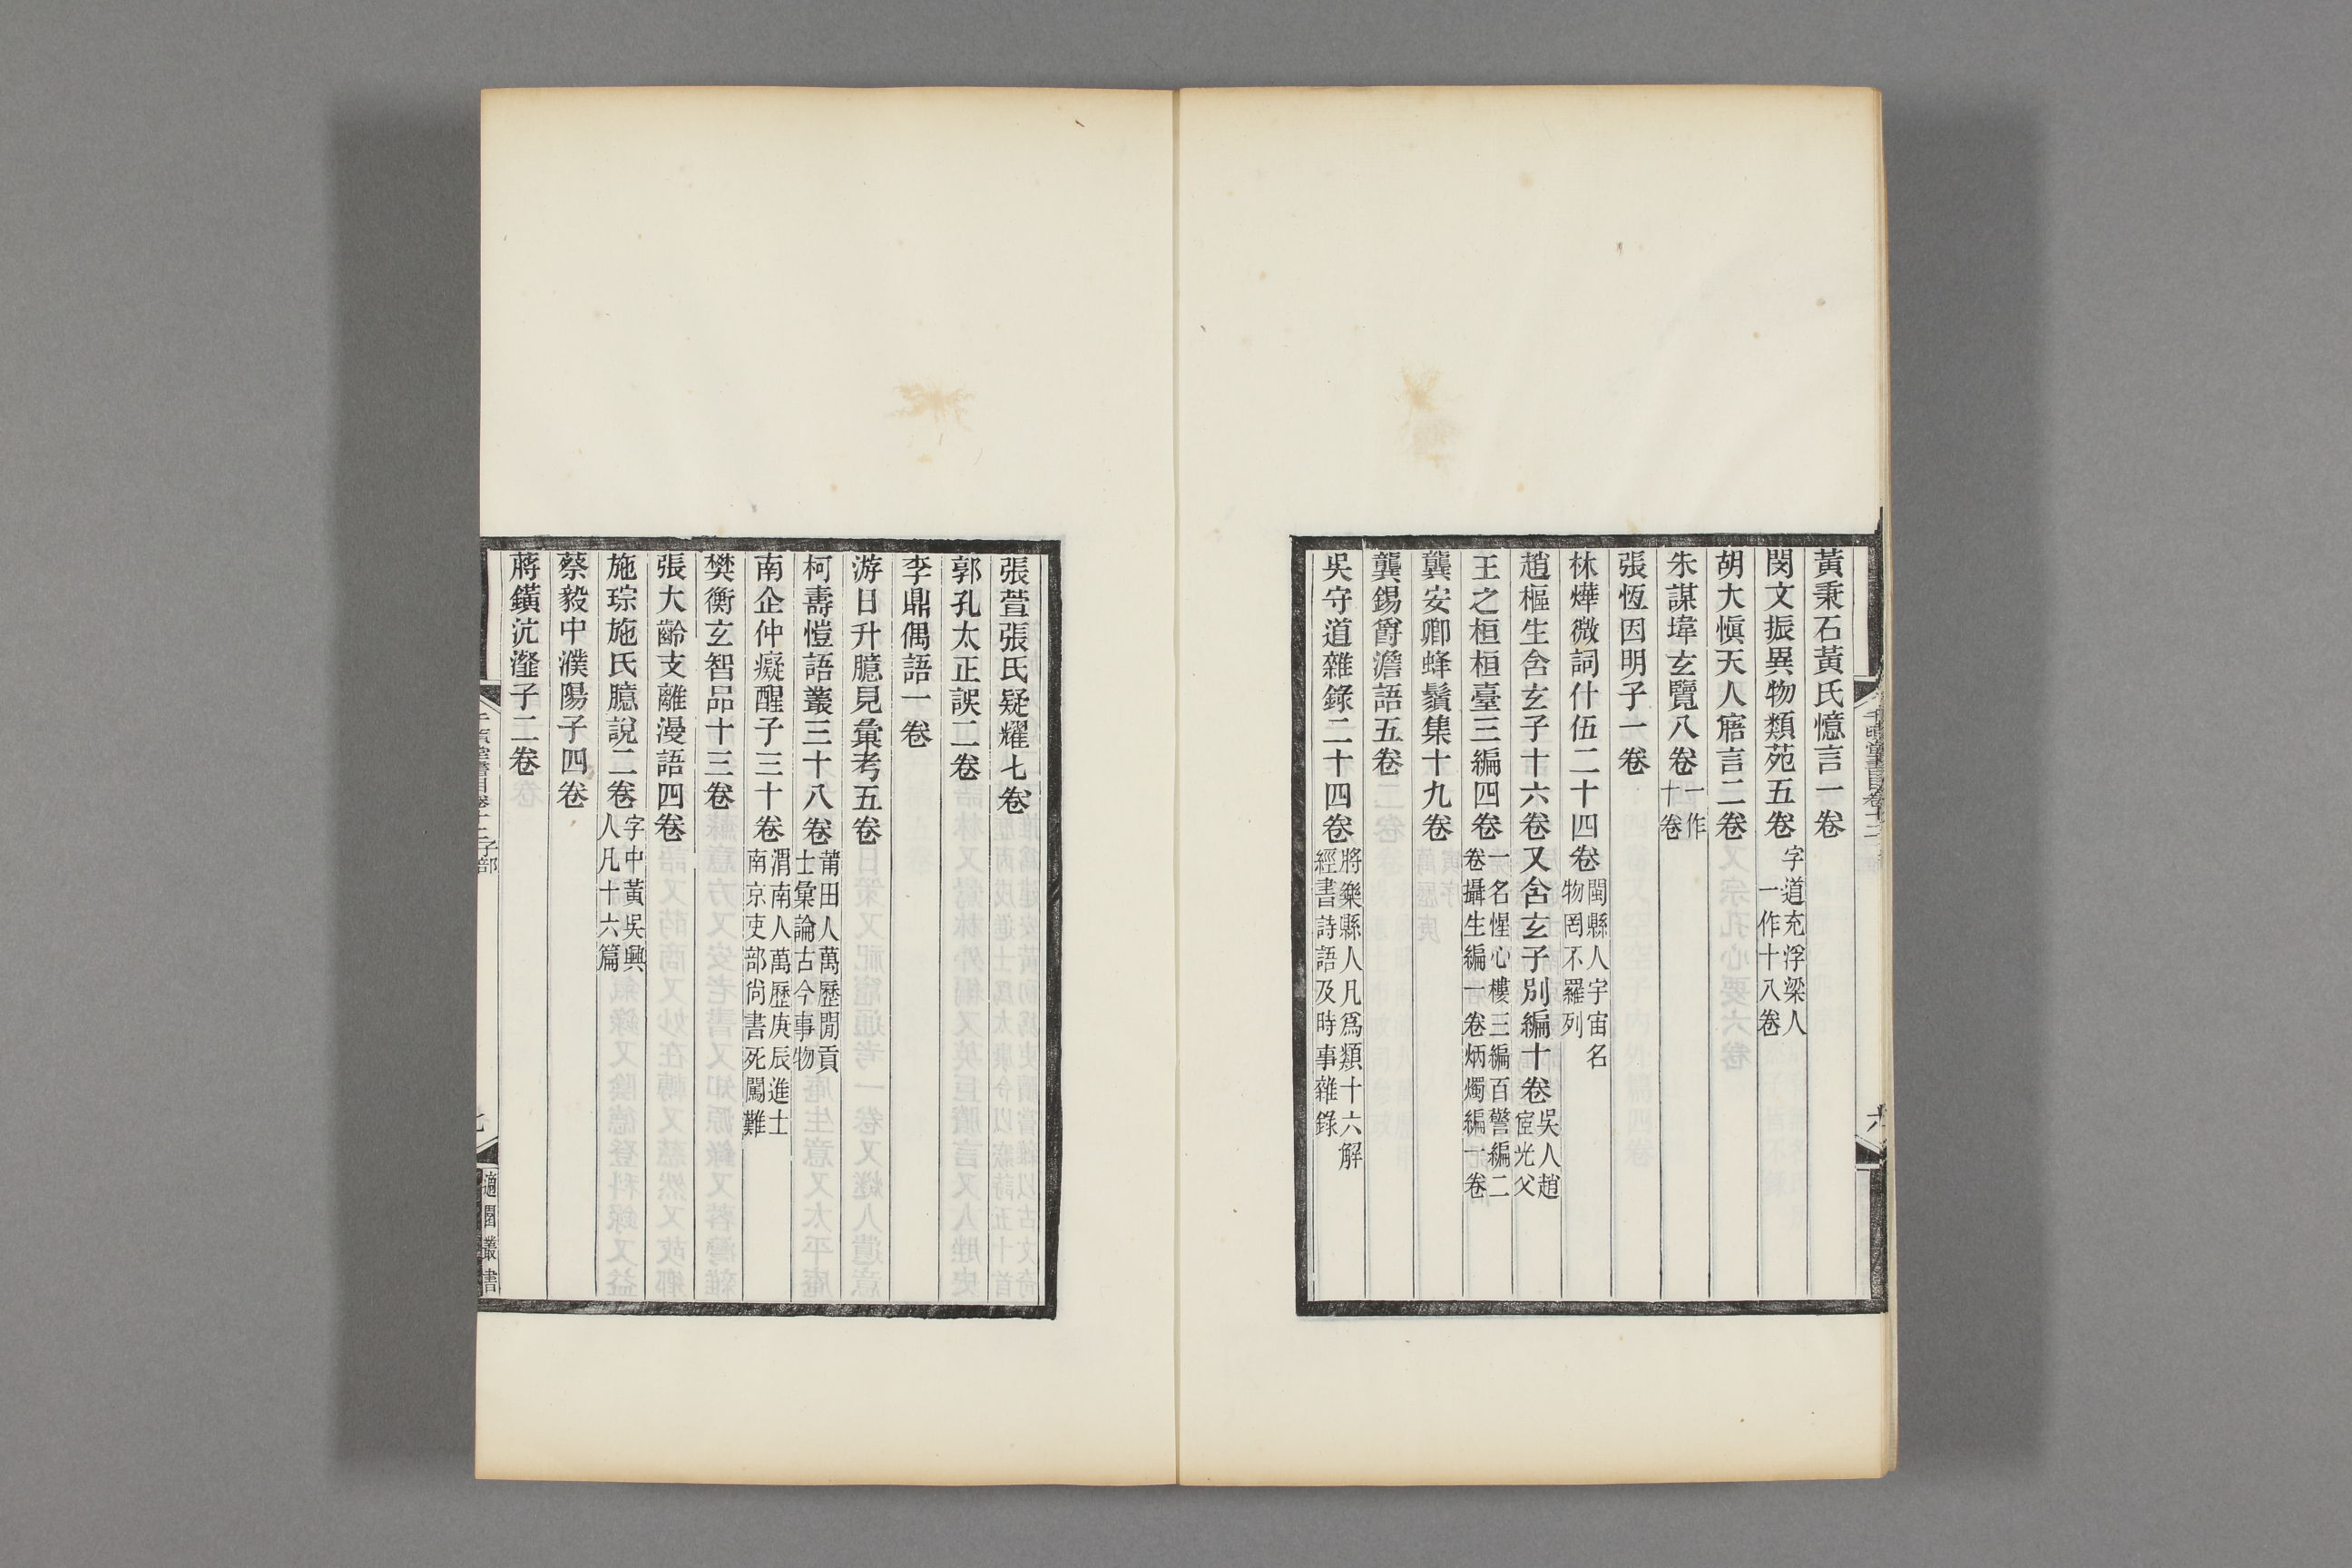 黃秉石黃氏憶言一卷
閔文振異物類苑五卷字道充浮梁人一作十八卷
胡大慎天人寤言二卷
朱謀㙔玄覽八卷一作十卷
張恆因明子一卷
林燁微詞什伍二十四卷閩縣人宇宙名物罔不羅列
趙樞生含玄子十六卷又含玄子別編十卷吳人趙宧光父
王之桓桓臺三編四卷一名惺心樓三編百警編二卷攝生編一卷炳燭編一卷
龔安卿蜂鬚集十九卷
龔錫爵澹語五卷
吳守道雜錄二十四卷將樂縣人凡爲類十六解經書詩語及時事雜錄
張萱張氏疑耀七卷
郭孔太正誤二卷
李鼎偶語一卷
游日升臆見彙考五卷
柯壽愷語叢三十八卷莆田人萬歷閒貢士彙論古今事物
南企仲癡醒子三十卷渭南人萬歷庚辰進士南京吏部尙書死闖難
樊衡玄智品十三卷
張大齡支離漫語四卷
施琮施氏臆說二卷字中黃吳興人凡十六篇
蔡毅中濮陽子四卷
蔣鐄沆瀣子二卷
適園叢書